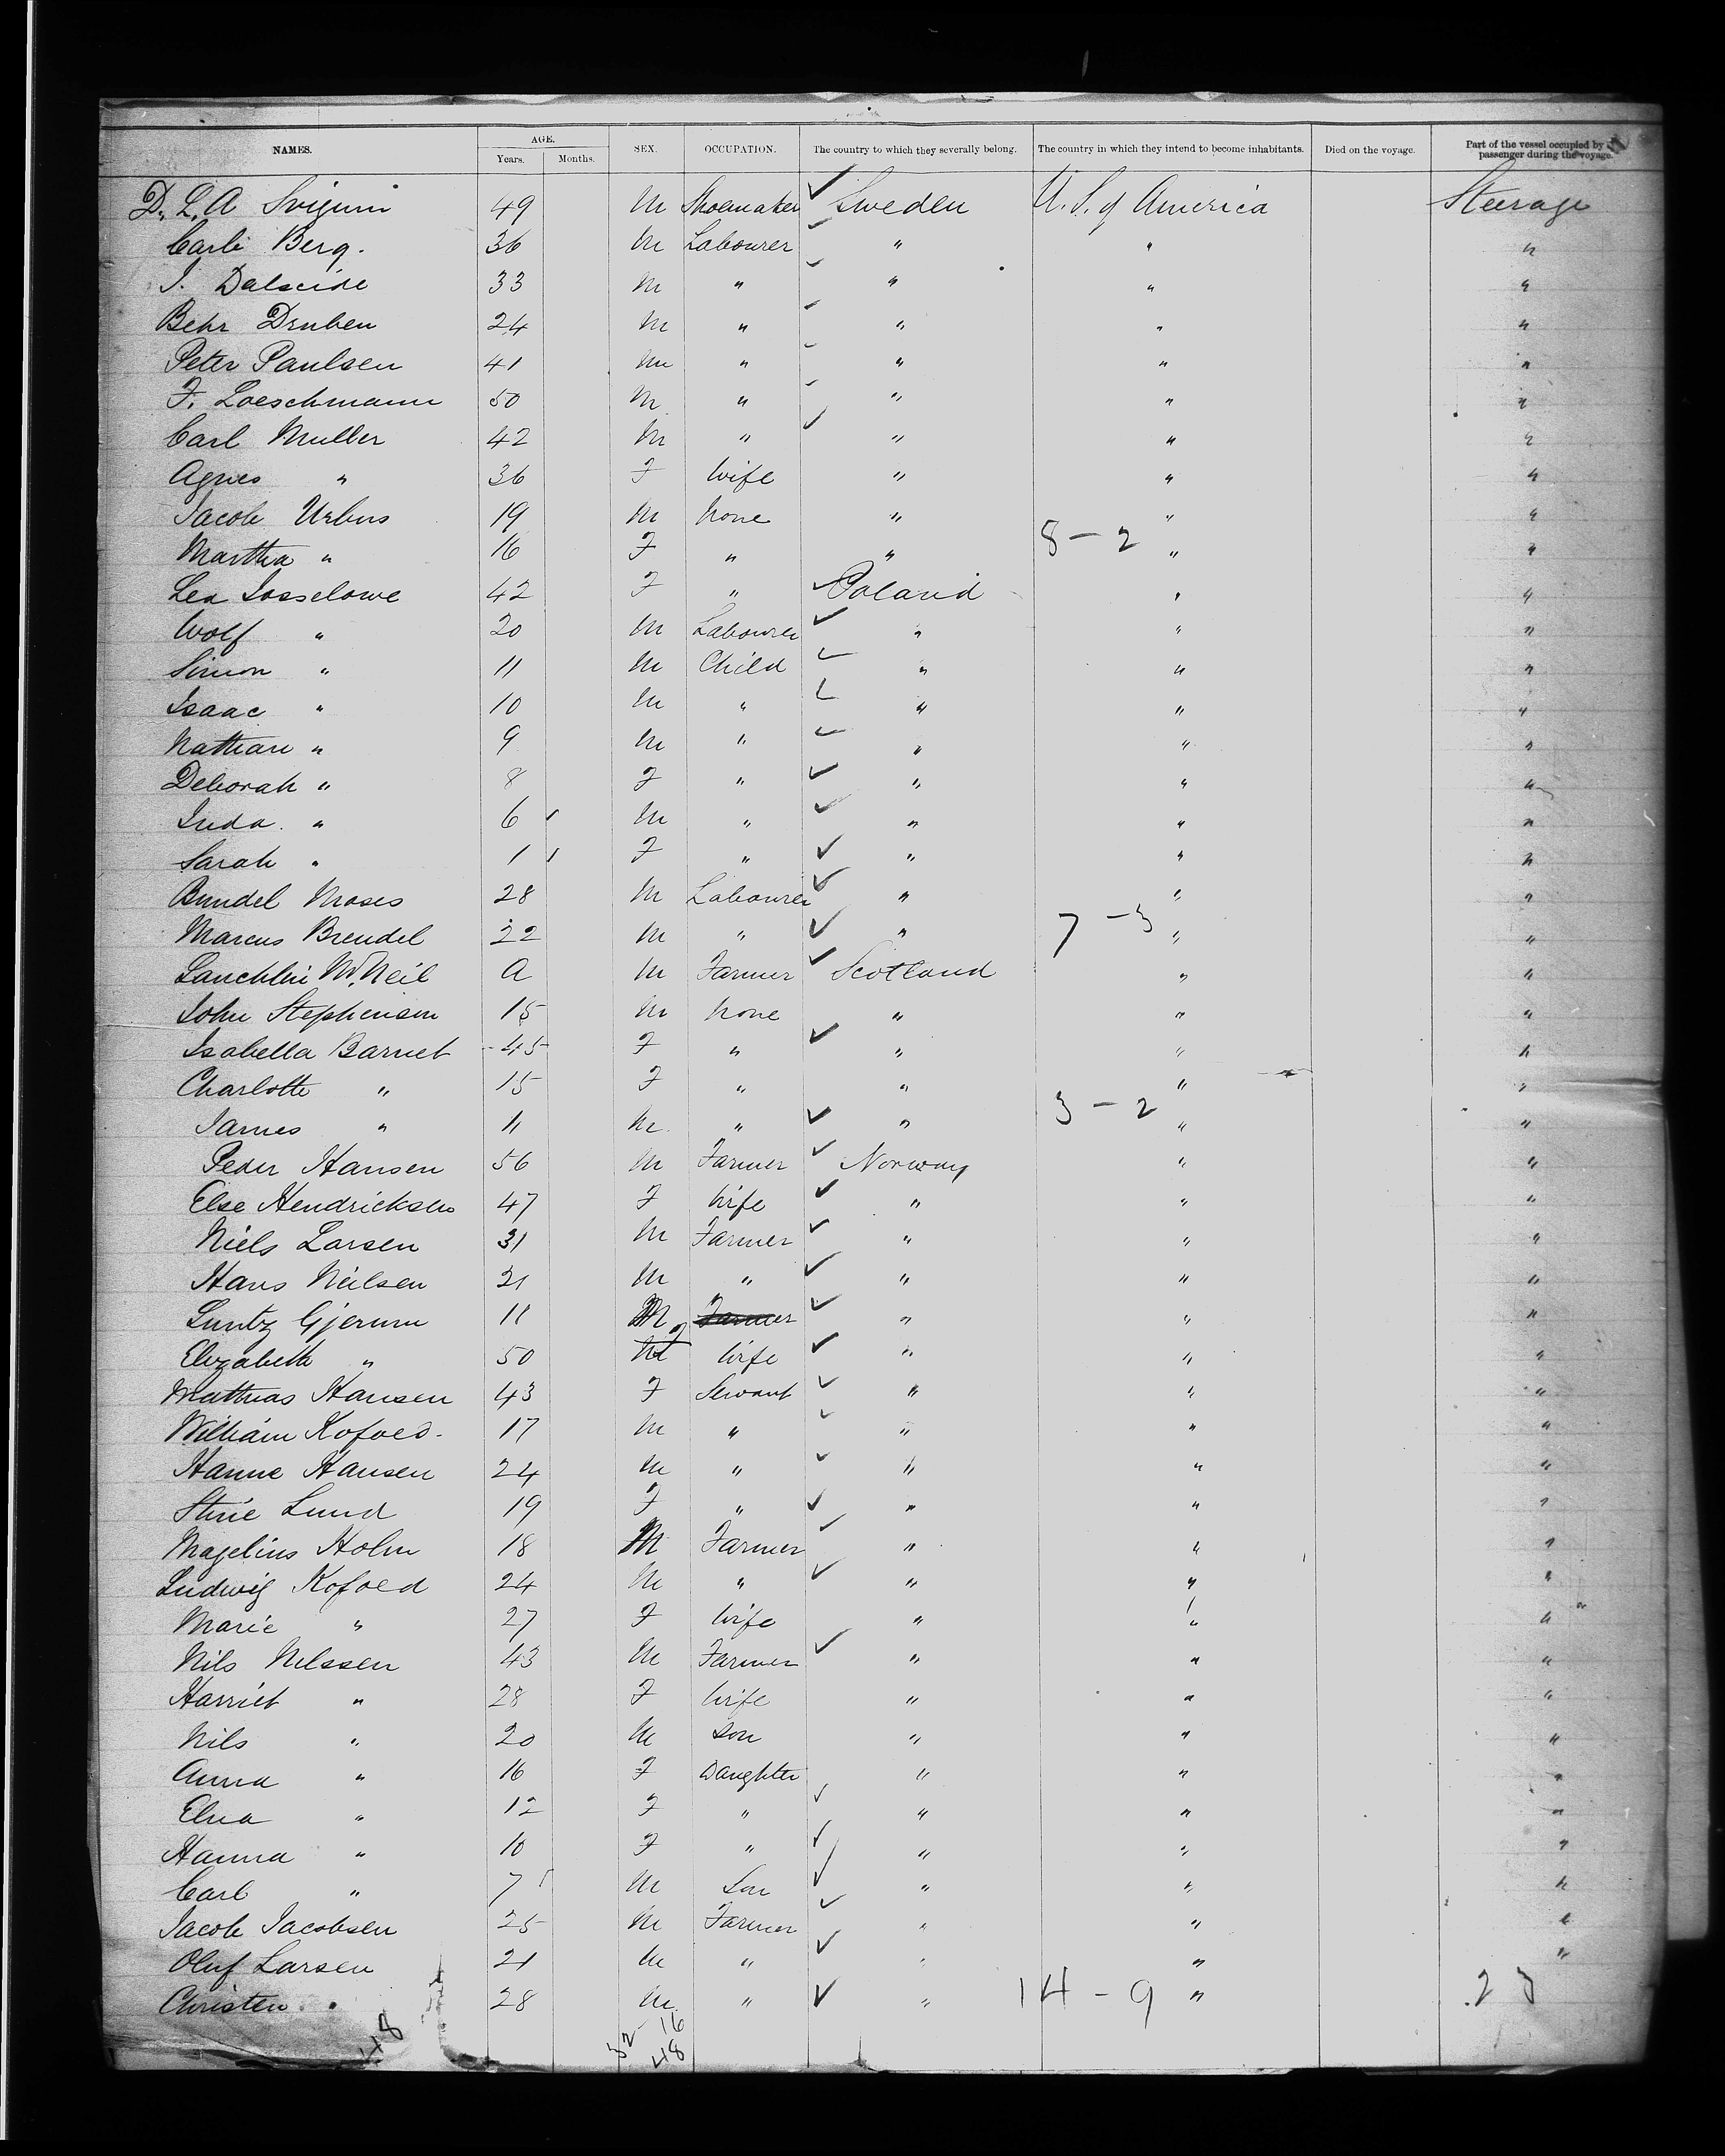 NAMES. AGE. Years. Months. SEX. OCCUPATION. The country to which they severally belong. The country in which they intend to become inhabitants. Died on the voyage. Part of the vessel occupied by passenger during the voyage.
D. L. A 49 M Shoemaker Sweden U. S. of America Steerage
Carli Berg. 36 M Labourer " " "
J. 33 M " " " "
Behr Druben 24 M " " " "
Peter Paulsen 41 M " " " "
F. Loeschmann 50 M " " " "
Carl Muller 42 M " " " "
Agnes " 36 F Wife " " "
Jacob Urbus 19 M None " " "
Martha " 16 F " " 8 - 2 " "
Lea Josselowe 42 F " Poland " "
Wolf " 20 M Labourer " " "
Simon " 11 M Child " " "
Isaac " 10 M " " " "
Nathan " 9 M " " " "
Deborah " 8 F " " " "
Juda. " 6 M " " " "
Sarah " 1 F " " " "
Moses 28 M Labourer " " "
Marcus Brendel 22 M " " 7 - 3 " "
Lauchlin McNeil A M Farmer Scotland " "
John Stephenson 15 M None " " "
Isabella Barnet 45 F " " " "
Charlotte " 15 F " " " "
James " 11 M " " 3 - 2 " "
Peder Hansen 56 M Farmer Norway " "
Else Hendricksen 47 F Wife " " "
Niels Larsen 31 M Farmer " " "
Hans Neilsen 21 M " " " "
Gjerum 11 M Farmer " " "
Elizabeth " 50 M F Wife " " "
Mathias Hansen 43 F Servant " " "
William Kofoed. 17 M " " " "
Hanne Hansen 24 M " " " "
Stine Lund 19 F " " " "
Magelius Holm 18 M Farmer " " "
Ludwig Kofoed 24 M " " " "
Marie " 27 F Wife " " "
Nils Nilssen 43 M Farmer " " "
Harriet " 28 F Wife " " "
Nils " 20 M Son " " "
Anna " 16 F Daughter " " "
Elna " 12 F " " " "
Hanna " 10 F " " " "
Carl " 7 M Son " " "
Jacob Jacobsen 25 M Farmer " " "
Oluf Larsen 21 M " " " "
Christen 28 M " " 14 - 9 " 23
48 32 - 16
48